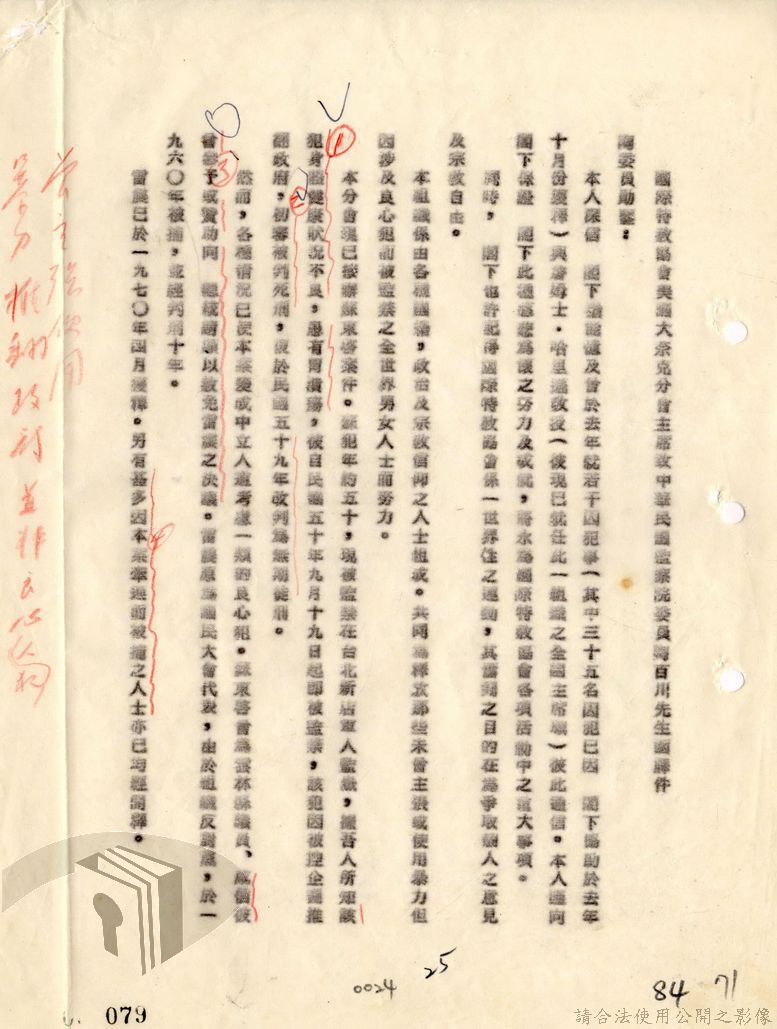 國際特赦協會奧國大奈克分會主席致中華民國監察院委員陶百川先生函譯件
陶委員勛鑒：
本人深信　閣下猶能憶及曾於去年就若干囚犯事（其中三十五名囚犯已因　閣下協助於去年
十月份獲釋）與詹姆士・哈里遜教授（彼現已就任此一組織之全國主席職）彼此通信。本人謹向
閣下保證　閣下此種慈悲為懷之努力及成就，將永為國際特赦協會各項活動中之重大事項。
同時，　閣下也許記得國際特赦協會係一世界性之運動，其籌創之目的在為爭取個人之意見
及宗教自由。
本組織係由各種國籍，政治及宗教信仰之人士組成。共同為釋放那些未曾主張或使用暴力但
因涉及良心犯而被監禁之全世界男女人士而努力。
本分會現已接辦蘇東啓案件。蘇犯年約五十，現被監禁在台北新店軍人監獄，據吾人所知該
犯身體健康狀況不良，患有胃潰瘍，彼自民國五十年九月十九日起即被監禁，該犯因被控企圖推
翻政府，初審被判死刑，後於民國五十九年改判為無期徒刑。
然而，各種情況已使本案變成中立人道考慮一類的良心犯。蘇東啓曾為雲林縣議員、咸信彼
曾參予或贊助向　總統請願以赦免雷震之決議。雷震原為國民大會代表，由於組織反對黨，於一
九六〇年被捕，並經判刑十年。
雷震已於一九七〇年四月獲釋。另有甚多因本案牽連而被捕之人士亦已均經開釋。
1
2
3
4
曾主張使用
暴力推翻政府並非良心人犯
25
0024
84 71
079
請合法使用公開之影像